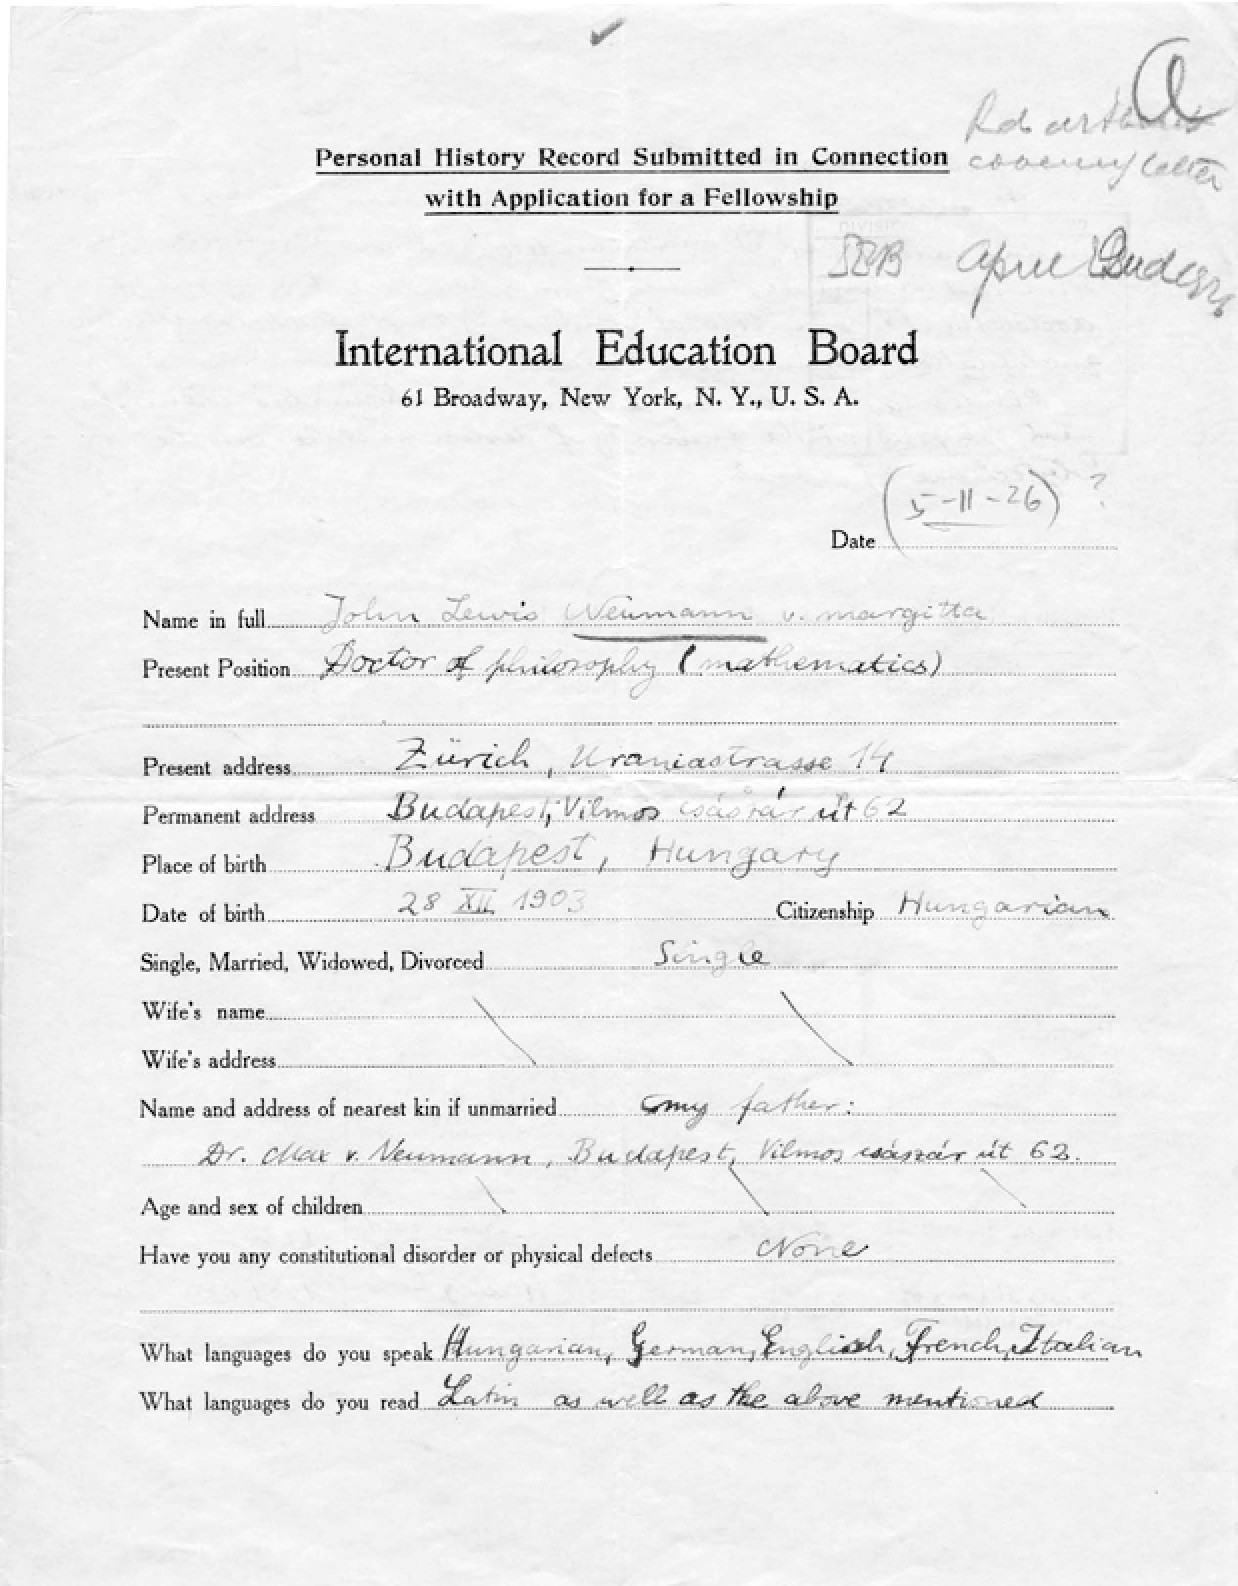 a
covering letter
Personal History Record Submitted in Connection
with Application for a Fellowship
IEB April
International Education Board
61 Broadway, New York, N. Y., U. S. A.
Date (5-II-26) ?
Name in full John Lewis Neumann v. margitta
Present Position Doctor of philosophy (mathematics)
Present address Zürich, Uraniastrasse 14
Permanent address Budapest, Vilmos császár út 62
Place of birth Budapest, Hungary
Date of birth 28 XII 1903 Citizenship Hungarian
Single, Married, Widowed, Divorced Single
Wife's name
Wife's address
Name and address of nearest kin if unmarried my father:
Dr. Max v. Neumann, Budapest, Vilmos császár út 62.
Age and sex of children
Have you any constitutional disorder or physical defects None
What languages do you speak Hungarian, German, English, French, Italian
What languages do you read Latin as well as the above mentioned